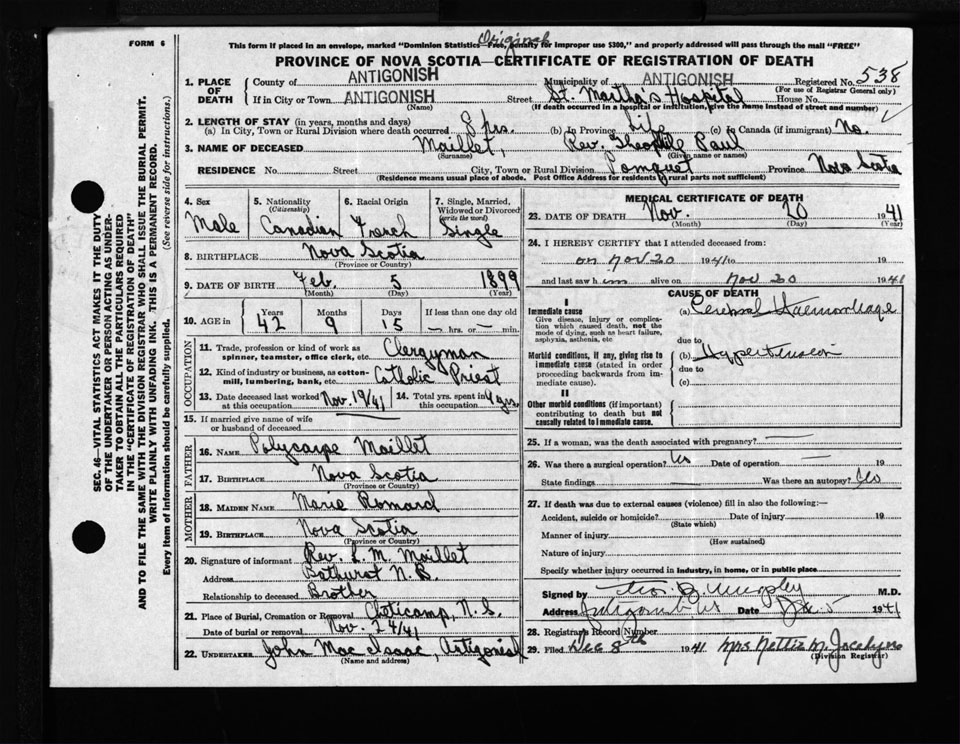 Original
FORM 6
This form if placed in an envelope, marked "Dominion Statistics—Free, penalty for improper use $300," and properly addressed will pass through the mail "FREE"
PROVINCE OF NOVA SCOTIA—CERTIFICATE OF REGISTRATION OF DEATH
1. PLACE OF DEATH County of ANTIGONISH Municipality of ANTIGONISH Registered No. 538
(For use of Registrar General only)
If in City or Town ANTIGONISH Street St. Martha's Hospital House No.
(Name) (If death occurred in a hospital or institution, give the name instead of street and number)
2. LENGTH OF STAY (in years, months and days)
(a) In City, Town or Rural Division where death occurred 8 hrs. (b) In Province Life (c) In Canada (if immigrant) No.
3. NAME OF DECEASED Maillet, Rev. Theophile Paul
(Surname) (Given name or names)
RESIDENCE No. Street City, Town or Rural Division Pomquet Province Nova Scotia
(Residence means usual place of abode. Post Office Address for residents of rural parts not sufficient)
4. Sex Male
5. Nationality (Citizenship) Canadian
6. Racial Origin French
7. Single, Married, Widowed or Divorced (write the word) Single
8. BIRTHPLACE Nova Scotia
(Province or Country)
9. DATE OF BIRTH Feb. 5 1899
(Month) (Day) (Year)
10. AGE in Years 42 Months 9 Days 15 If less than one day old — hrs. or — min.
OCCUPATION
11. Trade, profession or kind of work as spinner, teamster, office clerk, etc. Clergyman
12. Kind of industry or business, as cotton-mill, lumbering, bank, etc. Catholic Priest
13. Date deceased last worked at this occupation Nov. 19/41 14. Total yrs. spent in this occupation yrs.
15. If married give name of wife or husband of deceased
FATHER
16. NAME Polycarpe Maillet
17. BIRTHPLACE Nova Scotia
(Province or Country)
MOTHER
18. MAIDEN NAME Marie Romard
19. BIRTHPLACE Nova Scotia
(Province or Country)
20. Signature of informant Rev. L. M. Maillet
Address Bathurst N. B.
Relationship to deceased Brother
21. Place of Burial, Cremation or Removal Cheticamp, N. S.
Date of burial or removal Nov. 24/41
22. UNDERTAKER John Mac Isaac, Antigonish
(Name and address)
MEDICAL CERTIFICATE OF DEATH
23. DATE OF DEATH Nov. 20 1941
(Month) (Day) (Year)
24. I HEREBY CERTIFY that I attended deceased from:
on Nov 20 1941 to 19
and last saw him alive on Nov 20 1941
CAUSE OF DEATH
I
Immediate cause
Give disease, injury or complication which caused death, not the mode of dying, such as heart failure, asphyxia, asthenia, etc
(a) Cerebral Haemorrhage
due to
Morbid conditions, if any, giving rise to immediate cause (stated in order proceeding backwards from immediate cause).
(b) Hypertension
due to
(c)
II
Other morbid conditions (if important) contributing to death but not causally related to immediate cause.
25. If a woman, was the death associated with pregnancy? —
26. Was there a surgical operation? No Date of operation — 19
State findings — Was there an autopsy? No
27. If death was due to external causes (violence) fill in also the following:—
Accident, suicide or homicide? Date of injury 19
(State which)
Manner of injury
(How sustained)
Nature of injury
Specify whether injury occurred in industry, in home, or in public place
Signed by Murphy M.D.
Address Antigonish Date Dec 5 1941
28. Registrar's Record Number
29. Filed Dec 8th 1941 Mrs Nettie M. Jocelyn
(Division Registrar)
SEC. 46—VITAL STATISTICS ACT MAKES IT THE DUTY
OF THE UNDERTAKER OR PERSON ACTING AS UNDERTAKER
TO OBTAIN ALL THE PARTICULARS REQUIRED
IN THE "CERTIFICATE OF REGISTRATION OF DEATH"
AND TO FILE THE SAME WITH THE DIVISION REGISTRAR WHO SHALL ISSUE THE BURIAL PERMIT.
WRITE PLAINLY WITH UNFADING INK. THIS IS A PERMANENT RECORD.
Every item of information should be carefully supplied. (See reverse side for instructions.)